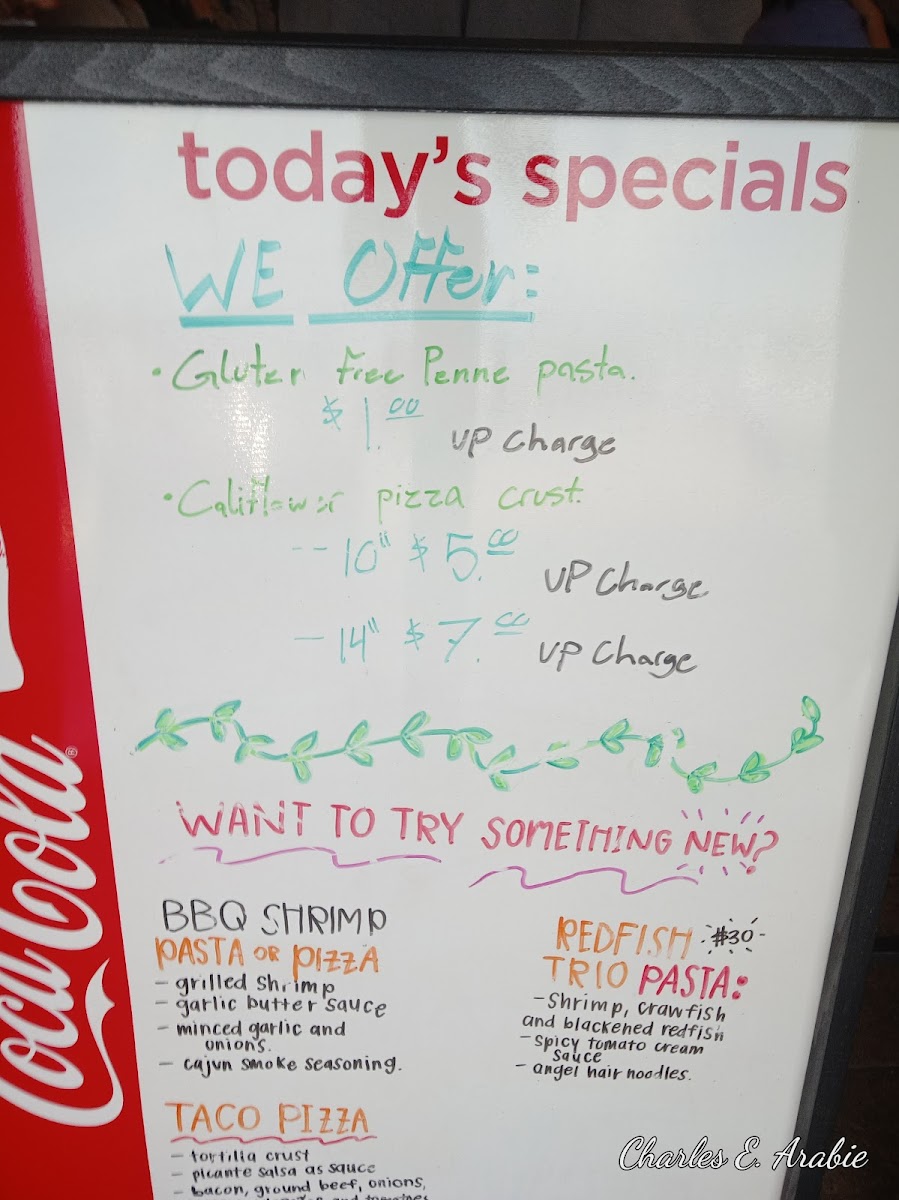 today's specials
WE Offer:
• Gluten free Penne pasta.
$1.00 UP Charge
• Califlower pizza crust.
-- 10" $5.00 UP Charge
- 14" $7.00 UP Charge
WANT TO TRY SOMETHING NEW?
BBQ SHRIMP
PASTA OR PIZZA
- grilled shrimp
- garlic butter sauce
- minced garlic and
onions.
- cajun smoke seasoning.
REDFISH $30
TRIO PASTA:
- Shrimp, crawfish
and blackened redfish
- spicy tomato cream
sauce
- angel hair noodles.
TACO PIZZA
- tortilla crust
- picante salsa as sauce
- bacon, ground beef, onions,
and tomatoes
Coca-Cola®
Charles E. Arabie